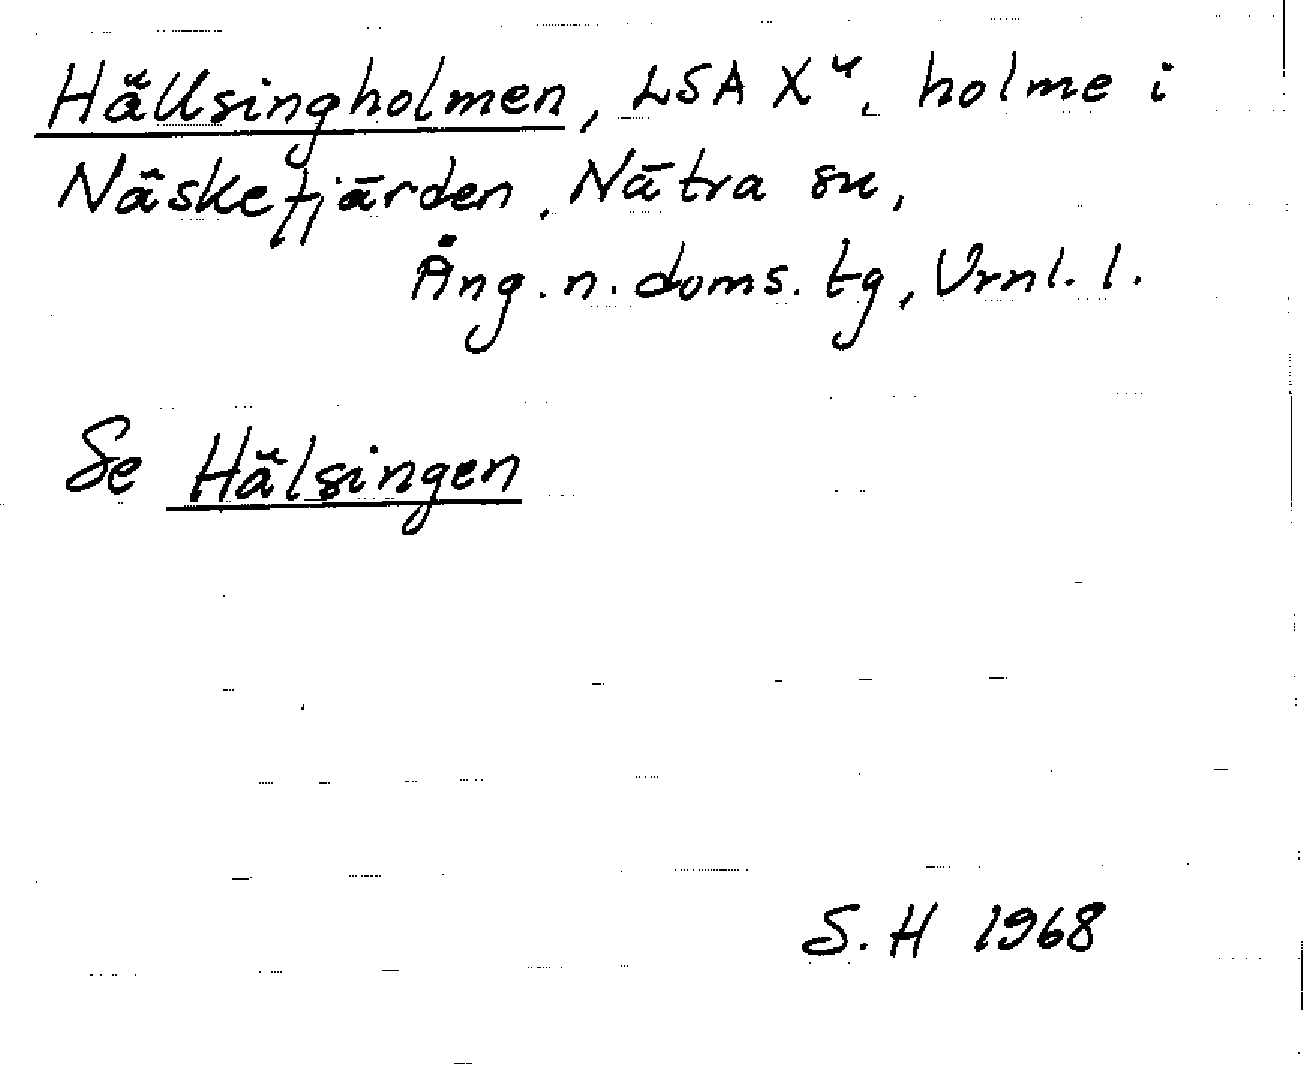 Hällsingholmen, LSA X⁴, holme i
Näskefjärden, Nätra sn,
Ång. n. doms. tg, Vrnl. l.
Se Hälsingen
S. H 1968